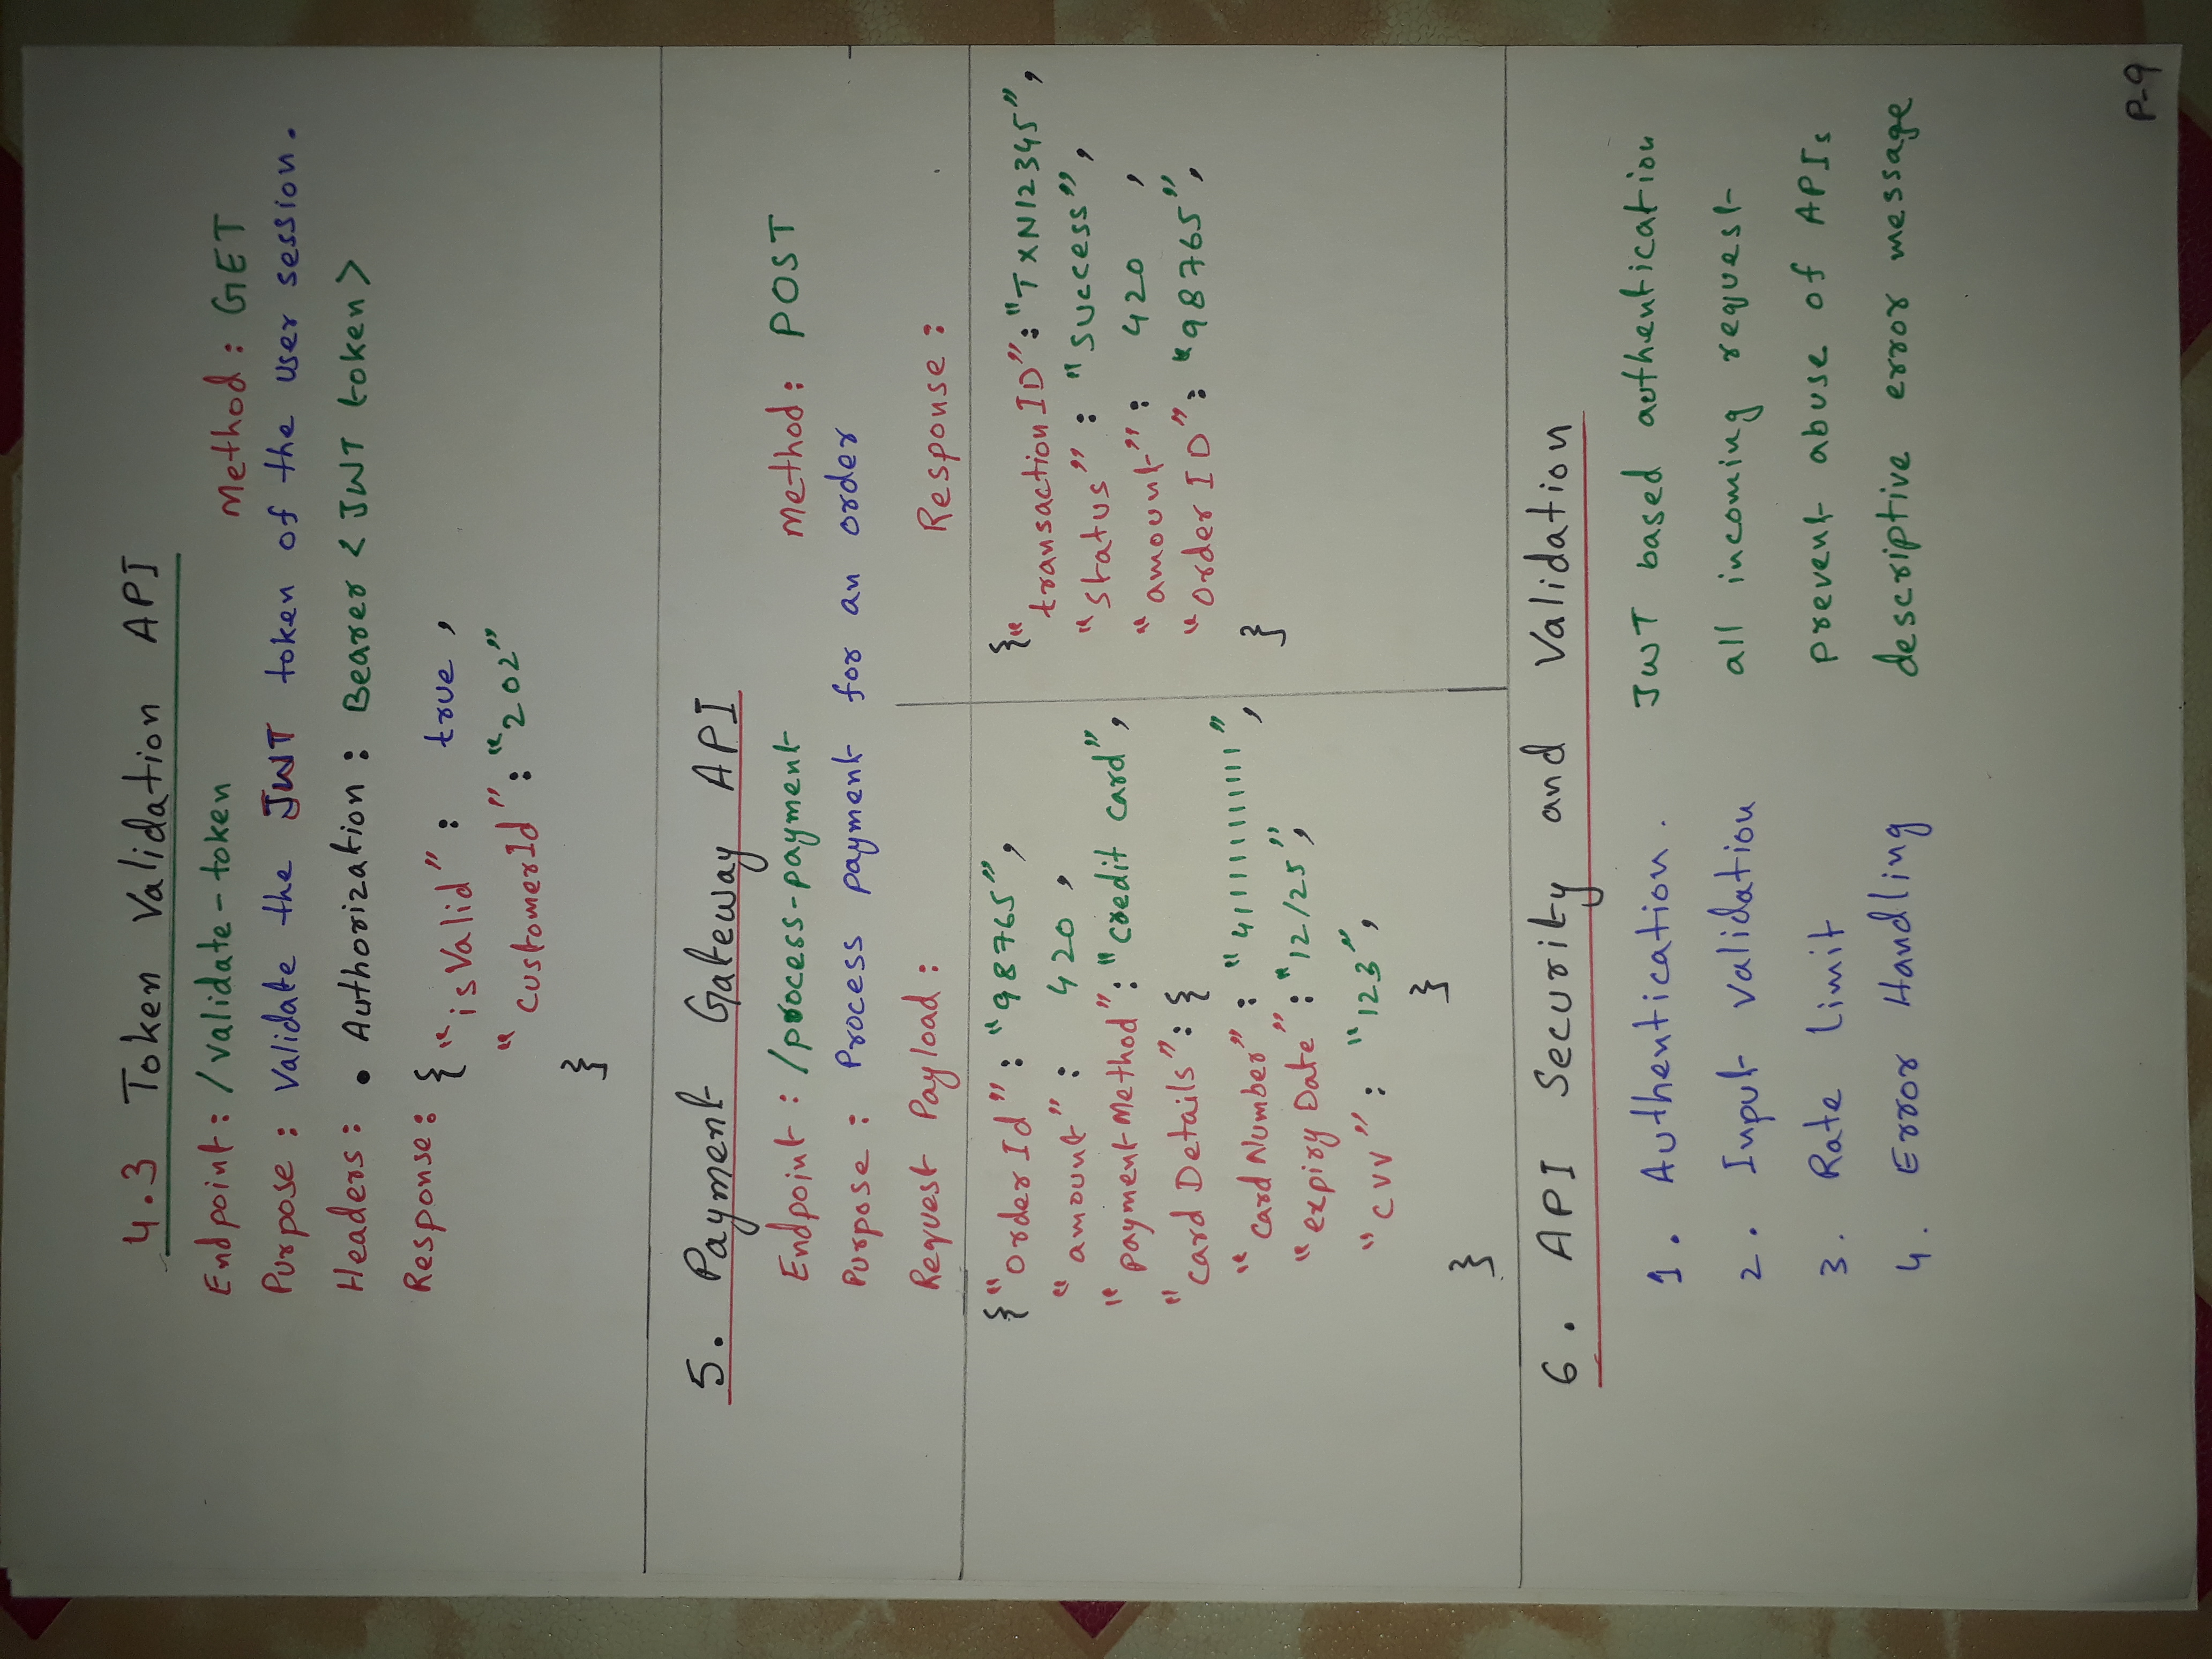 4.3 Token Validation API
Endpoint: /validate-token Method: GET
Purpose: Validate the JWT token of the user session.
Headers: • Authorization: Bearer <JWT token>
Response: { "isValid": true,
"customerId": "202"
}
5. Payment Gateway API
Endpoint: /process-payment Method: POST
Purpose: Process payment for an order
Request Payload:
{"orderId": "98765",
"amount": 420,
"paymentMethod": "credit card",
"cardDetails": {
"cardNumber": "4111111111111",
"expiryDate": "12/25",
"cvv": "123",
}
}
Response:
{"transactionID": "TXN12345",
"status": "success",
"amount": 420,
"orderID": "98765",
}
6. API Security and Validation
1. Authentication. JWT based authentication
2. Input validation all incoming request
3. Rate limit prevent abuse of APIs
4. Error Handling descriptive error message
P-9